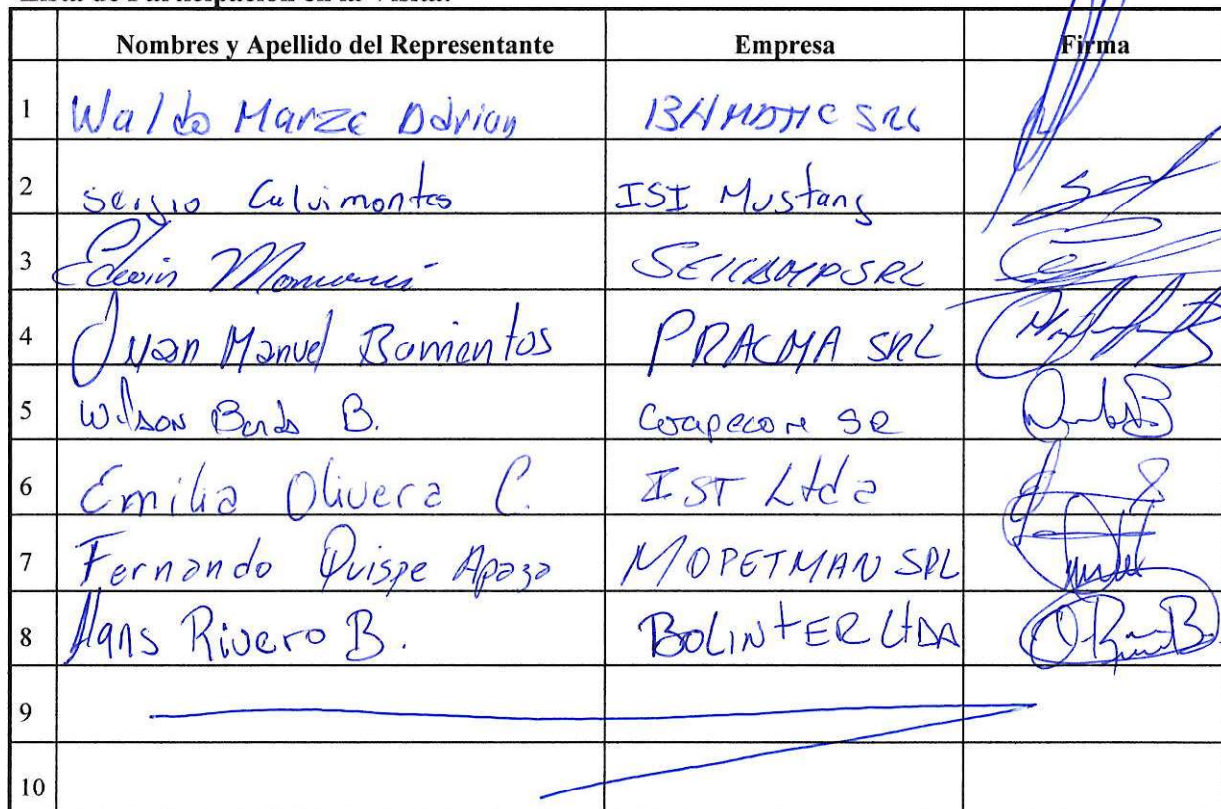 Lista de Participación en la Visita:
Nombres y Apellido del Representante Empresa Firma
1 Waldo Marze SRL
2 Sergio Calvimontes ISI Mustang
3 Edwin SRL
4 Juan Manuel Barrientos PRACMA SRL
5 Wilson B.
6 Emilia Olivera C. IST Ltda
7 Fernando Quispe Apaza MOPETMAN SRL
8 Hans Rivero B. BOLINTER LTDA
9
10